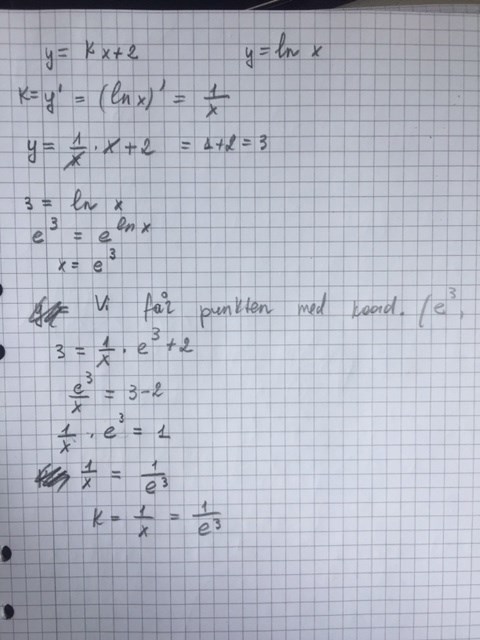 y = kx+2 y = ln x
k = y' = (ln x)' = 1/x
y = 1/x · x + 2 = 1+2 = 3
3 = ln x
e³ = e^ln x
x = e³
Vi får punkten med koord. (e³,
3 = 1/x · e³ + 2
e³/x = 3-2
1/x · e³ = 1
1/x = 1/e³
k = 1/x = 1/e³